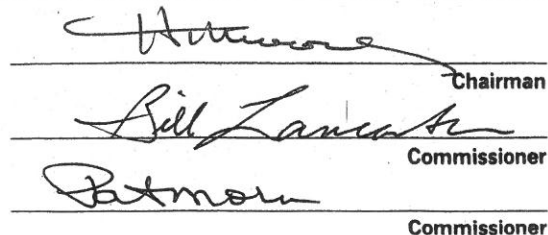 Chairman
Bill Lancaster
Commissioner
Pat Moran
Commissioner